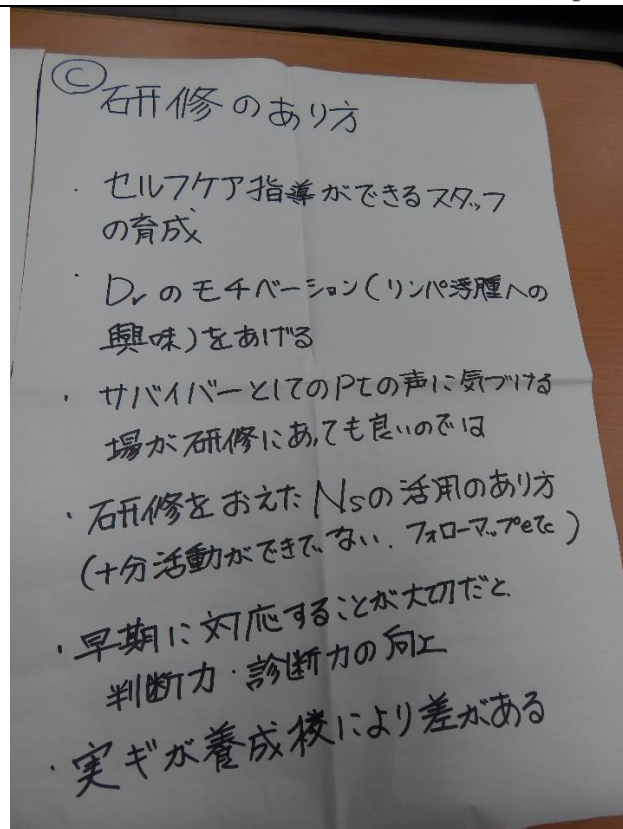 Ⓒ研修のあり方
・セルフケア指導ができるスタッフ
の育成
・Drのモチベーション(リンパ浮腫への
興味)をあげる
・サバイバーとしてのPtの声に気づける
場が研修にあっても良いのでは
・研修をおえたNsの活用のあり方
(十分活動ができてない、フォローアップetc)
・早期に対応することが大切だと
判断力・診断力の向上
・実ギが養成校により差がある